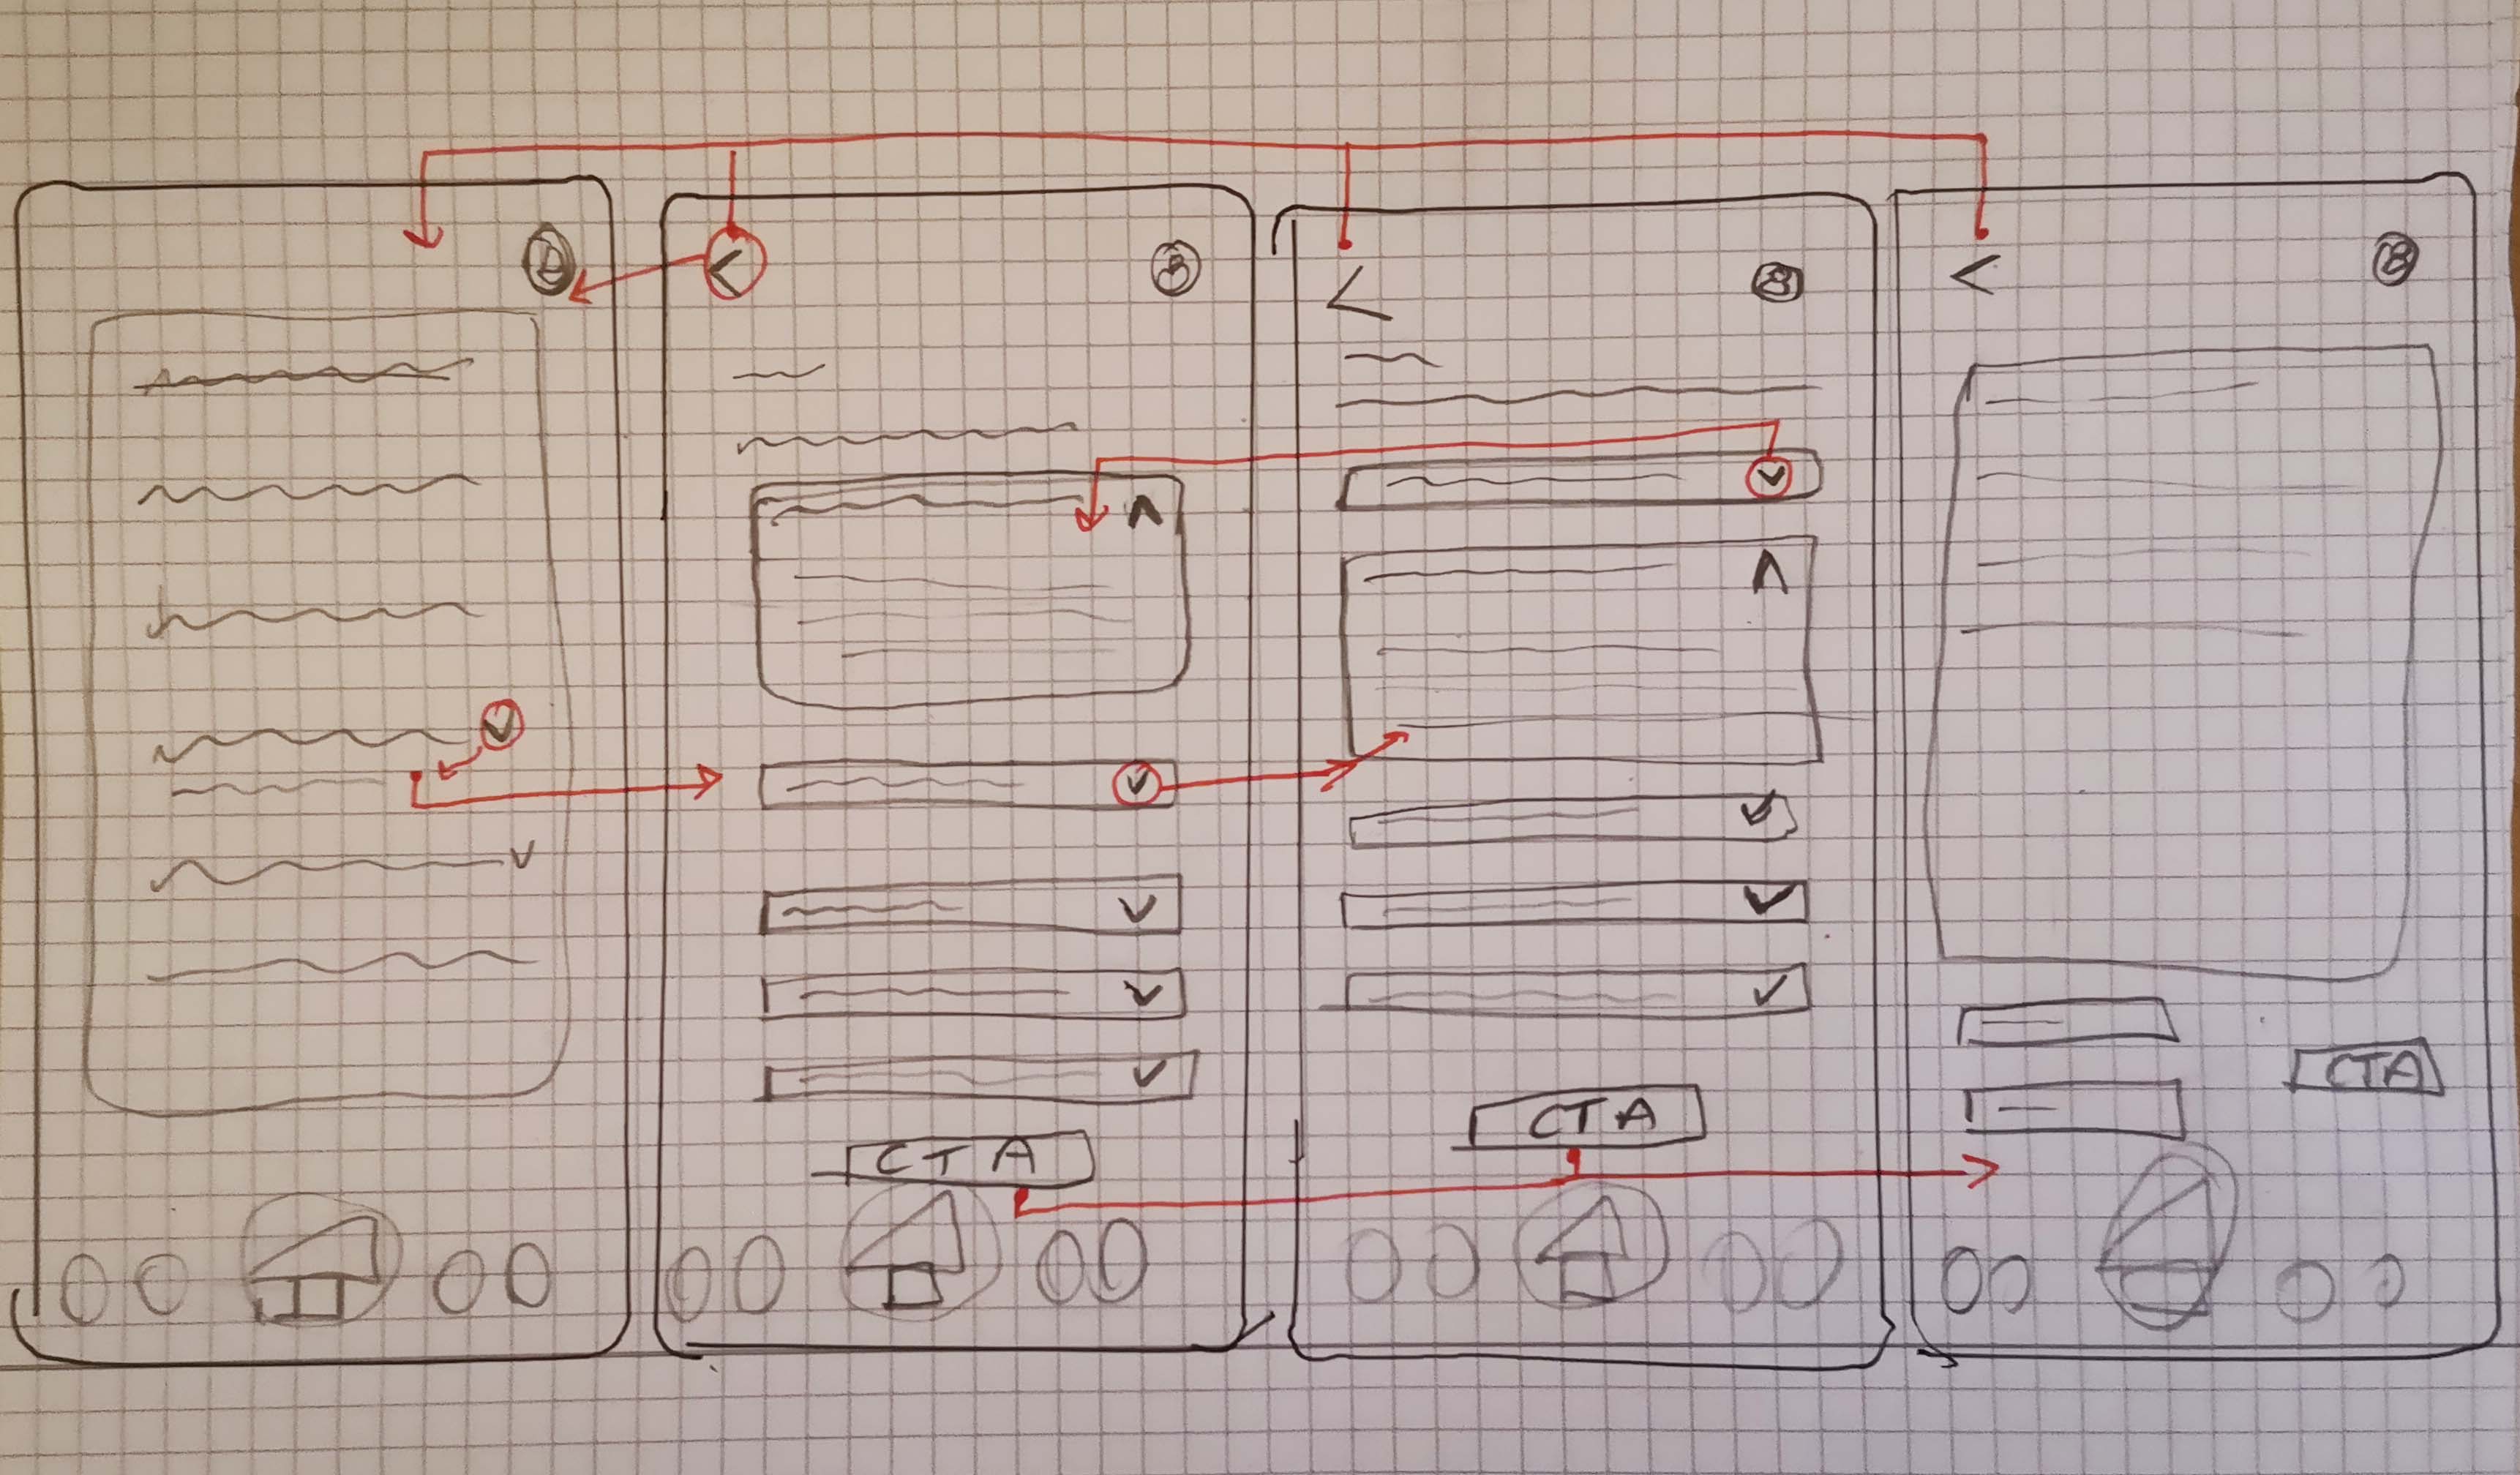 CTA
CTA
CTA